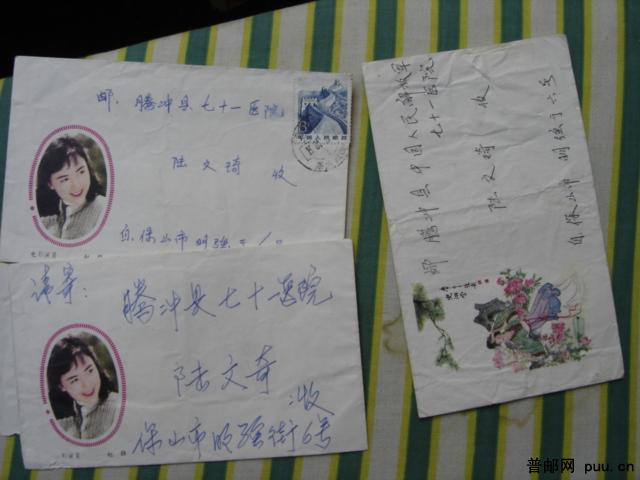 邮. 腾冲县七十一医院
陆文琦 收
自. 保山市
电影演员
请寄:
腾冲县七十一医院
陆文奇
收
保山市明强街6号
邮 腾冲县中国人民解放军
七十一医院
陆文琦 收
自. 保山市
普邮网 puu.cn